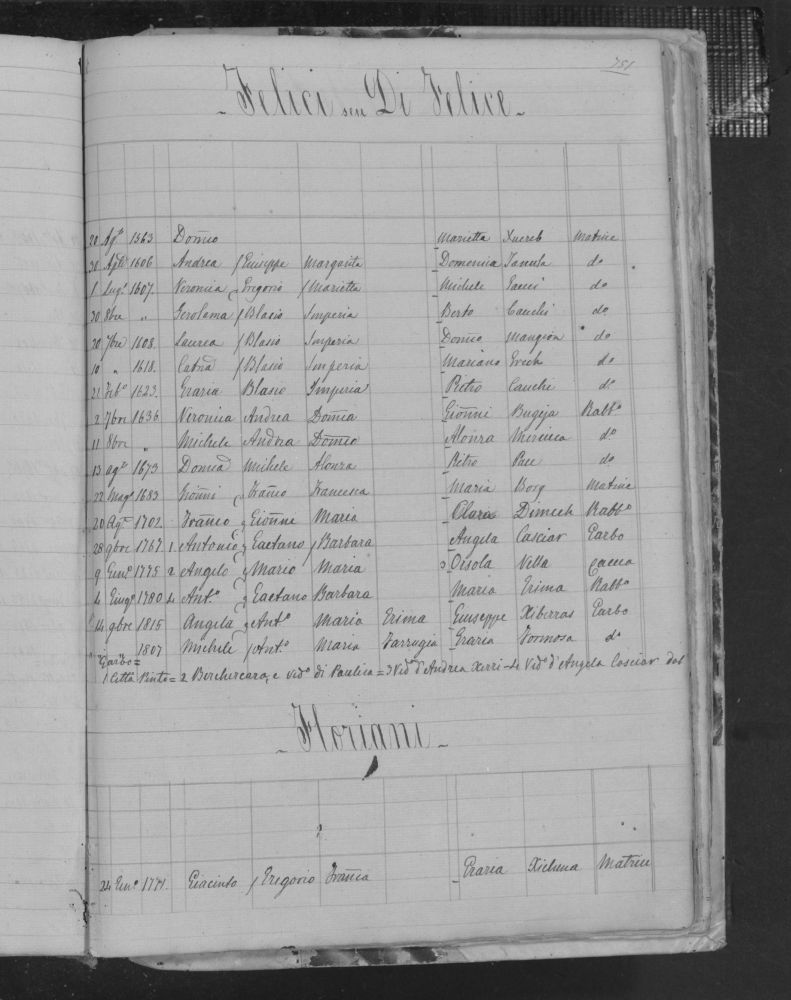 751
- Felici seu Di Felice -
20 Ag.º 1563 Dom̃co Marietta Xuereb Matrice
30 1606 Andrea / Giuseppe Margarita Domenica d.º
1 Lug.º 1607. Veronica Gregorio / Marietta Michele d.º
30 8bre " Gerolama / Blasio Imperia Berto Cauchi d.º
20 7bre 1608. Laurea / Blasio Imperia Domco Mangion d.º
10 " 1618. / Blasio Imperia Mariano d.º
21 Feb.º 1623. Grazia Blasio Imperia Pietro Cauchi d.º
2 7bre 1636. Veronica Andrea Dom̃ca Gioñni Bugeja Rabb.º
11 8bre " Michele Andrea Dom̃ca Alonza d.º
13 ag.º 1673 Michele Alonza Pietro Pace d.º
22 Mag.º 1683 Gioñni Frañco Francesca Maria Borg Matrice
20 Ag.º 1702. Frañco Gioñni Maria Clara Dimech Rabb.º
28 9bre 1767. 1. Antonio Gaetano / Barbara Angela Casciar Garbo
9 Gen.º 1775 2 Angelo Mario Maria 3 Orsola Vella Caccia
4 Giug.º 1780 4 Ant.º Gaetano Barbara Maria Grima Rabb.º
14 9bre 1815 Angela Ant.º Maria Grima Giuseppe Xiberras Garbo
1807 Michele / Ant.º Maria Farrugia Grazia Formosa d.º
Garbo =
1 Città Pinto = 2 Birchircara, e Vid.º di Paulica = 3 Vid.ª d'Andrea Xerri - 4 Vid.º d'Angela Casciar dal
- Floriani -
24 Gen.º 1771. Giacinto / Gregorio Frañca Grazia Xicluna Matrice